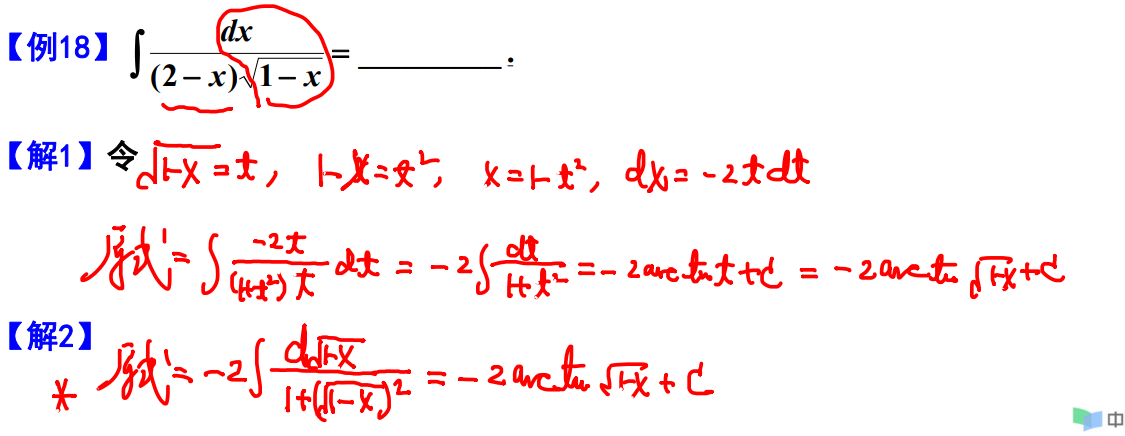 【例18】 ∫ dx / ((2 − x)√(1 − x)) = ________ .
【解1】 令 √(1-x) = t, 1-x = t², x = 1-t², dx = -2t dt
原式 = ∫ -2t / ((1+t²) t) dt = -2 ∫ dt / (1+t²) = -2 arctan t + C = -2 arctan √(1-x) + C
【解2】
* 原式 = -2 ∫ d√(1-x) / (1+(√(1-x))²) = -2 arctan √(1-x) + C
中